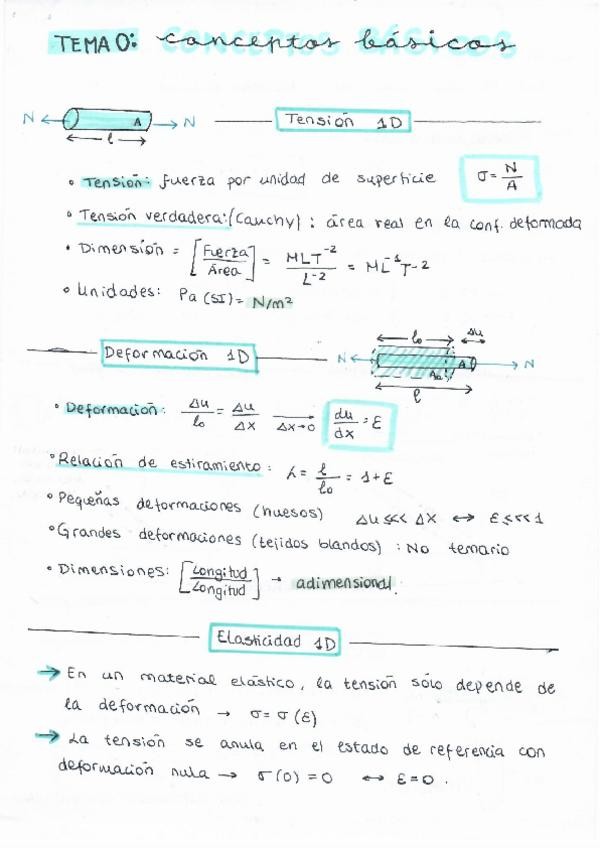 TEMA 0: conceptos básicos
N A N
l
Tensión 1D
• Tensión: fuerza por unidad de superficie σ = N/A
• Tensión verdadera: (Cauchy) : área real en la conf. deformada
• Dimensión = [Fuerza/Área] = MLT⁻²/L⁻² = ML⁻¹T-2
• Unidades: Pa (SI) = N/m²
Deformación 1D
l₀ Δu
N A N
A₀
l
• Deformación: Δu/l₀ = Δu/Δx → Δx→0 du/dx = ε
• Relación de estiramiento: λ = l/l₀ = 1+ε
• Pequeñas deformaciones (huesos) Δu <<< Δx ↔ ε <<< 1
• Grandes deformaciones (tejidos blandos) : No temario
• Dimensiones: [Longitud/Longitud] → adimensional.
Elasticidad 1D
→ En un material elástico, la tensión sólo depende de
la deformación → σ = σ(ε)
→ La tensión se anula en el estado de referencia con
deformación nula → σ(0) = 0 ↔ ε = 0.